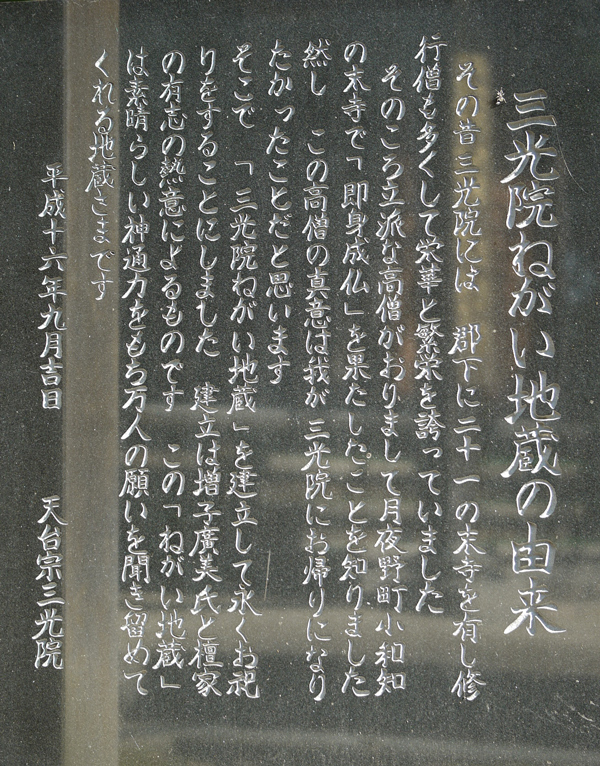 三光院ねがい地蔵の由来
その昔三光院には 郡下に二十一の末寺を有し修
行僧も多くして栄華と繁栄を誇っていました
そのころ立派な高僧がおりまして月夜野町小和知
の末寺で「即身成仏」を果たしたことを知りました
然し この高僧の真意は我が三光院にお帰りになり
たかったことだと思います
そこで 「三光院ねがい地蔵」を建立して永くお祀
りをすることにしました 建立は増子廣美氏と檀家
の有志の熱意によるものです この「ねがい地蔵」
は素晴らしい神通力をもち万人の願いを聞き留めて
くれる地蔵さまです
平成十六年九月吉日 天台宗三光院